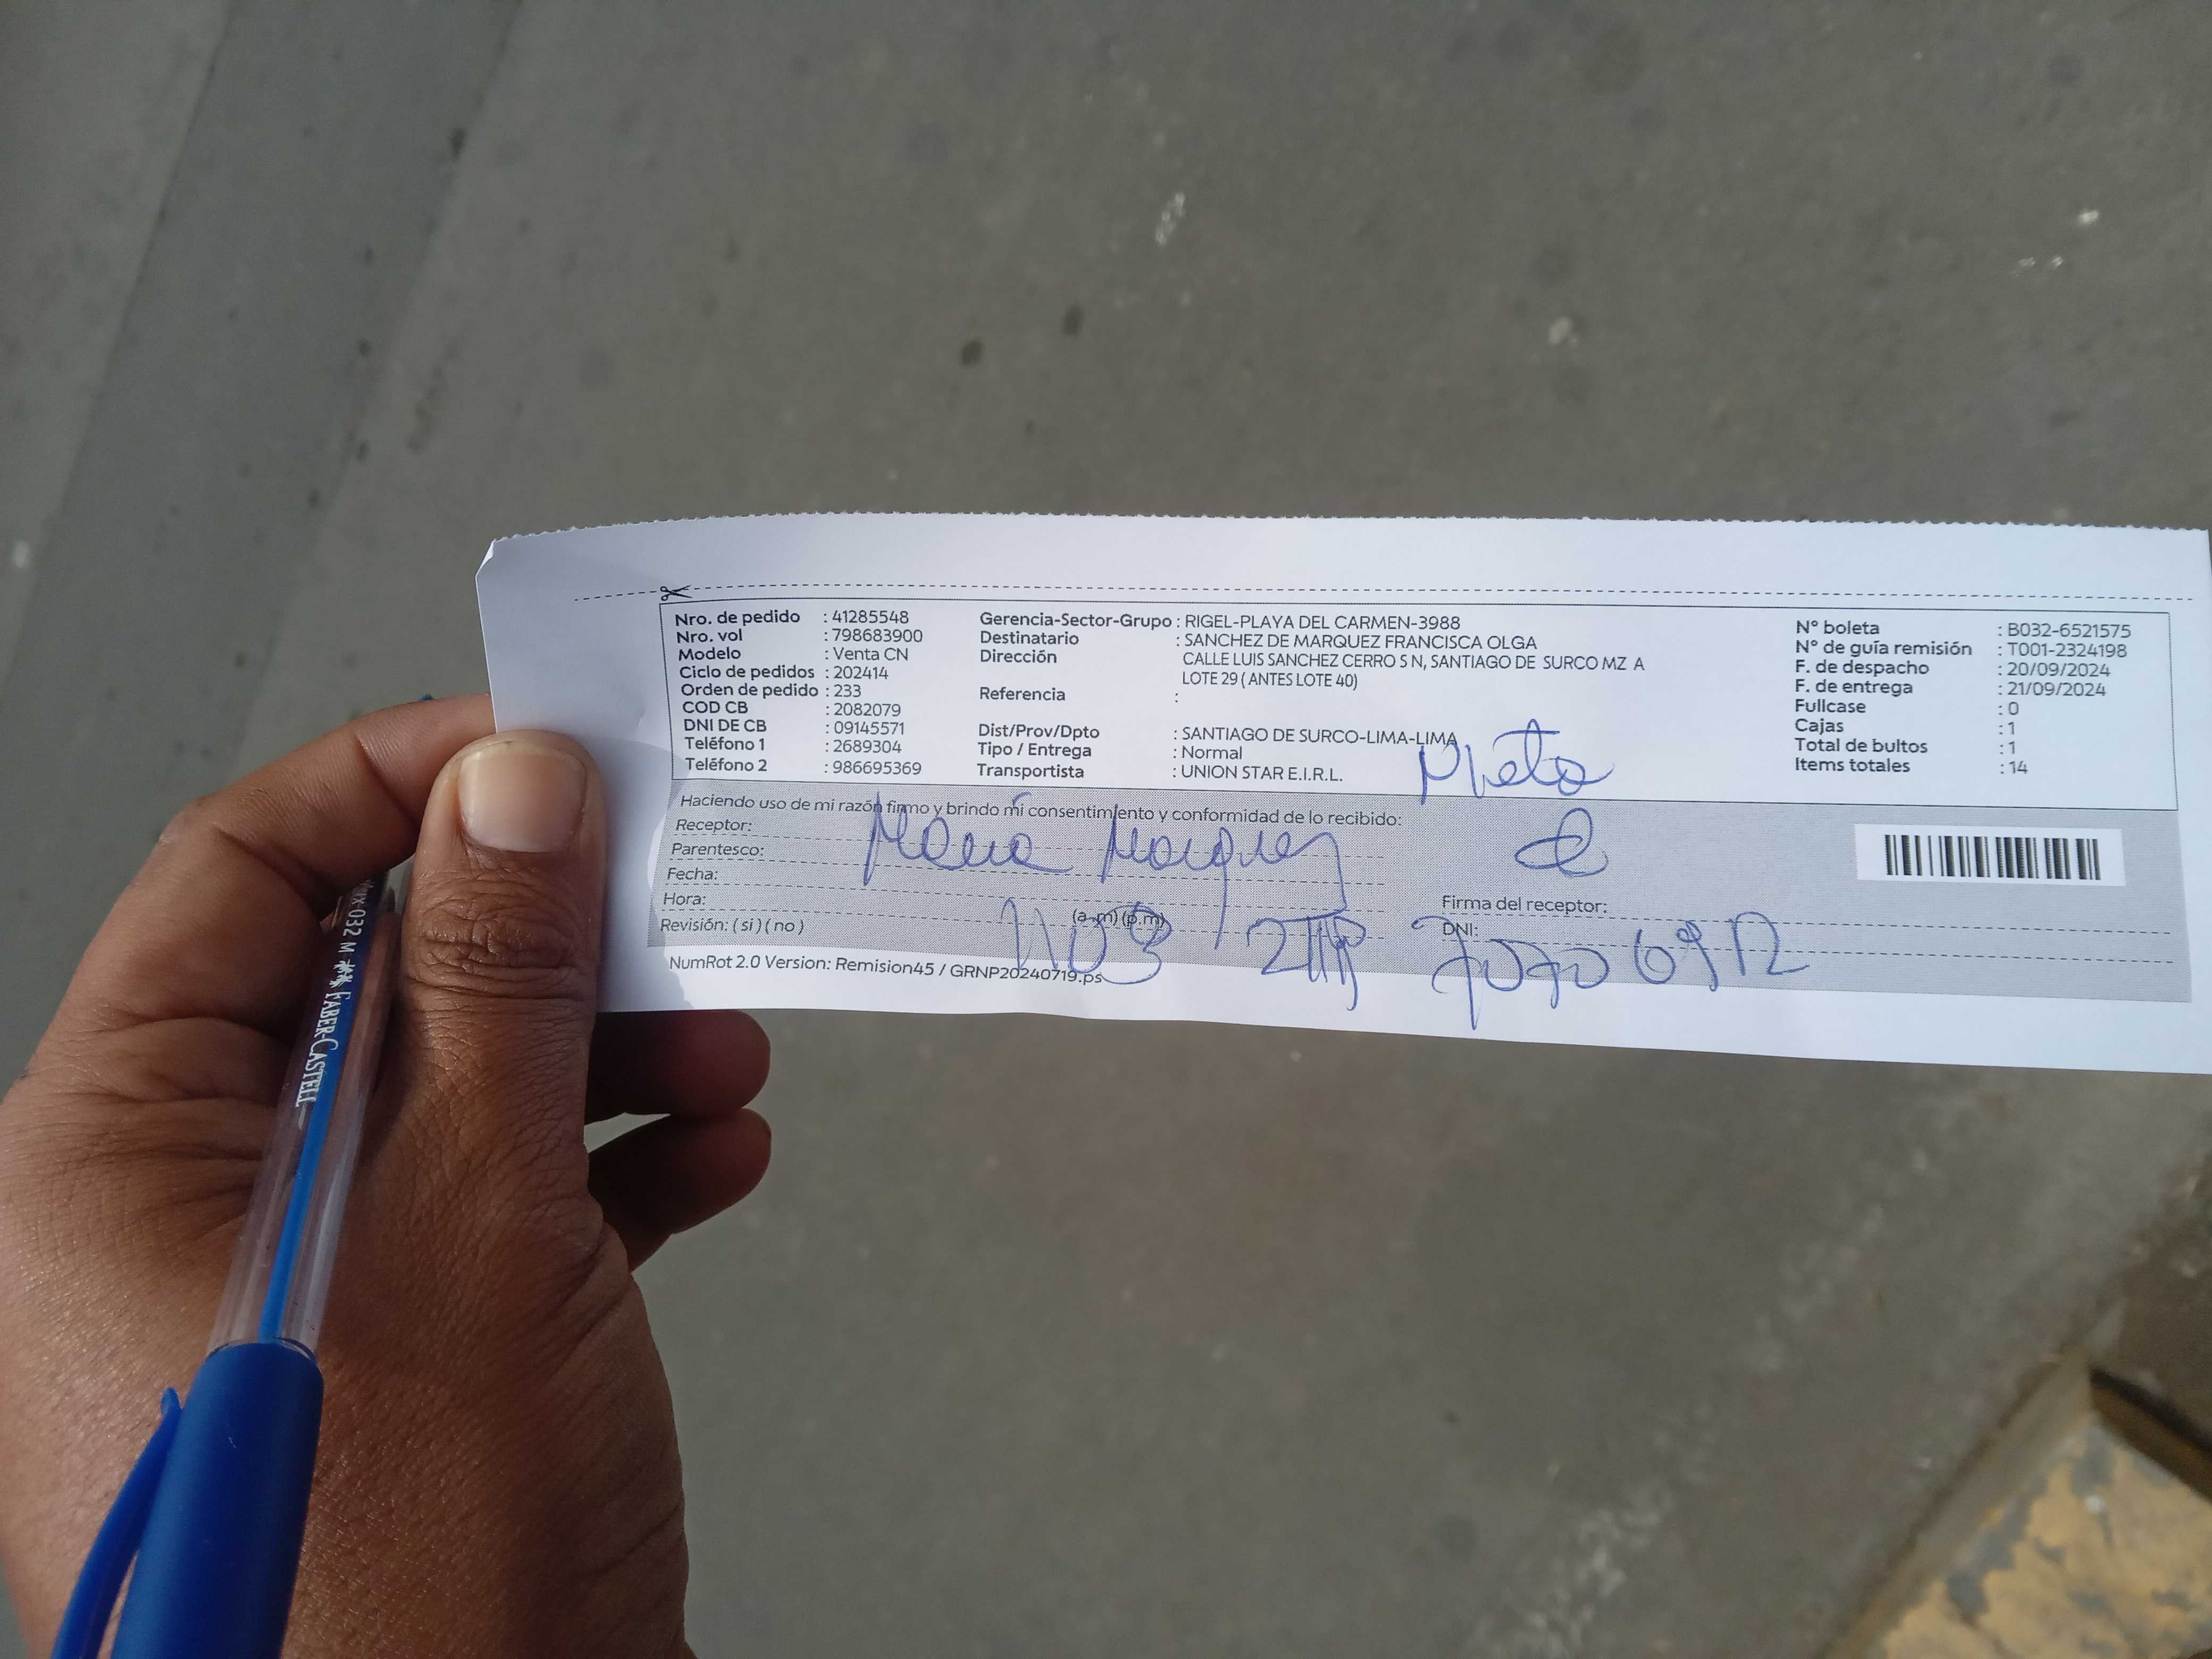 Nro. de pedido : 41285548
Nro. vol : 798683900
Modelo : Venta CN
Ciclo de pedidos : 202414
Orden de pedido : 233
COD CB : 2082079
DNI DE CB : 09145571
Teléfono 1 : 2689304
Teléfono 2 : 986695369
Gerencia-Sector-Grupo : RIGEL-PLAYA DEL CARMEN-3988
Destinatario : SANCHEZ DE MARQUEZ FRANCISCA OLGA
Dirección CALLE LUIS SANCHEZ CERRO S N, SANTIAGO DE SURCO MZ A
LOTE 29 ( ANTES LOTE 40)
Referencia :
Dist/Prov/Dpto : SANTIAGO DE SURCO-LIMA-LIMA
Tipo / Entrega : Normal
Transportista : UNION STAR E.I.R.L.
N° boleta : B032-6521575
N° de guía remisión : T001-2324198
F. de despacho : 20/09/2024
F. de entrega : 21/09/2024
Fullcase : 0
Cajas : 1
Total de bultos : 1
Items totales : 14
Haciendo uso de mi razón firmo y brindo mi consentimiento y conformidad de lo recibido:
Receptor: Marquez
Parentesco:
Fecha:
Hora: (a.m) (p.m)
Revisión: ( si ) ( no )
Firma del receptor:
DNI:
1103
NumRot 2.0 Version: Remision45 / GRNP20240719.ps
032 M FABER-CASTELL